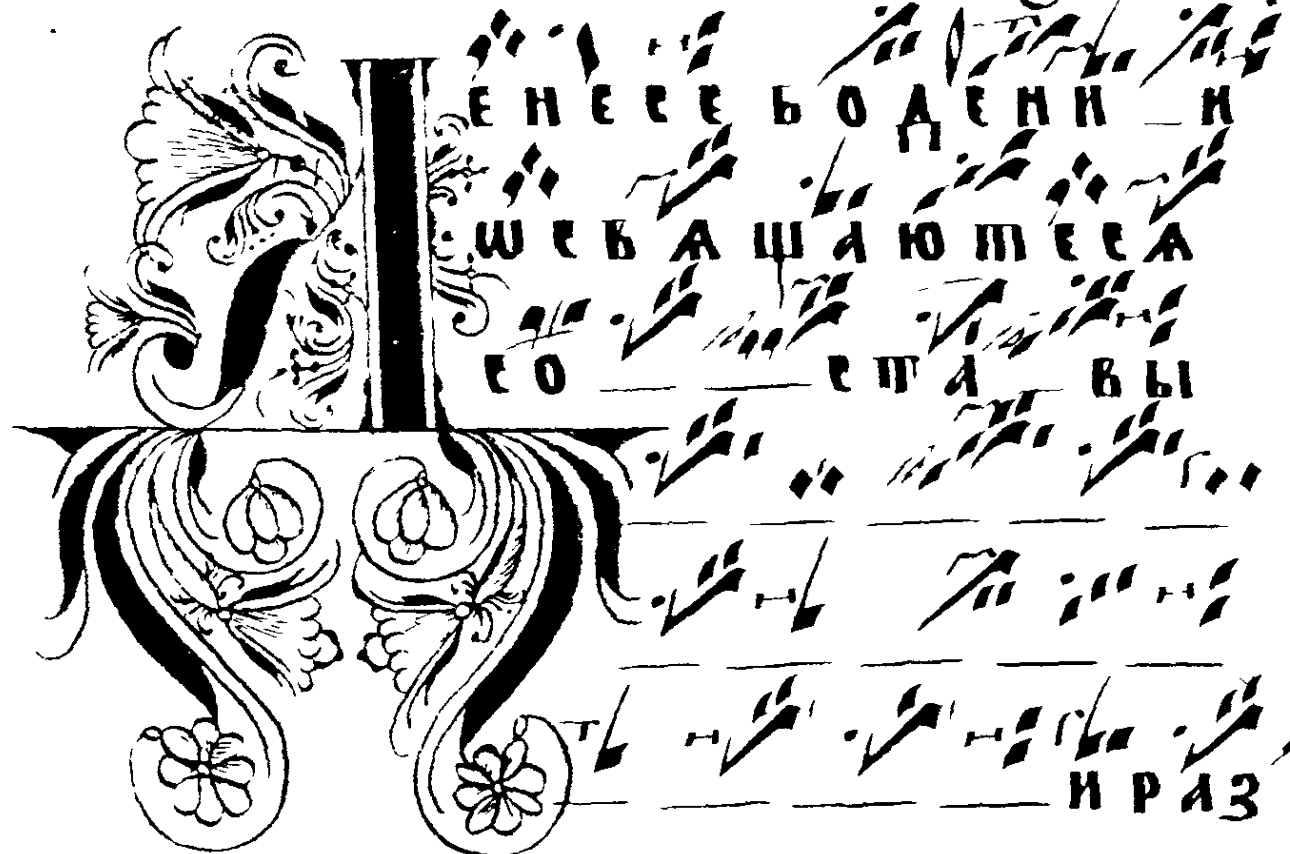 ДЕНЕСЕ ВОДЕНИ И
ѠСВѦЩАЮТЕСѦ
СО СТА ВЫ
И РАЗ